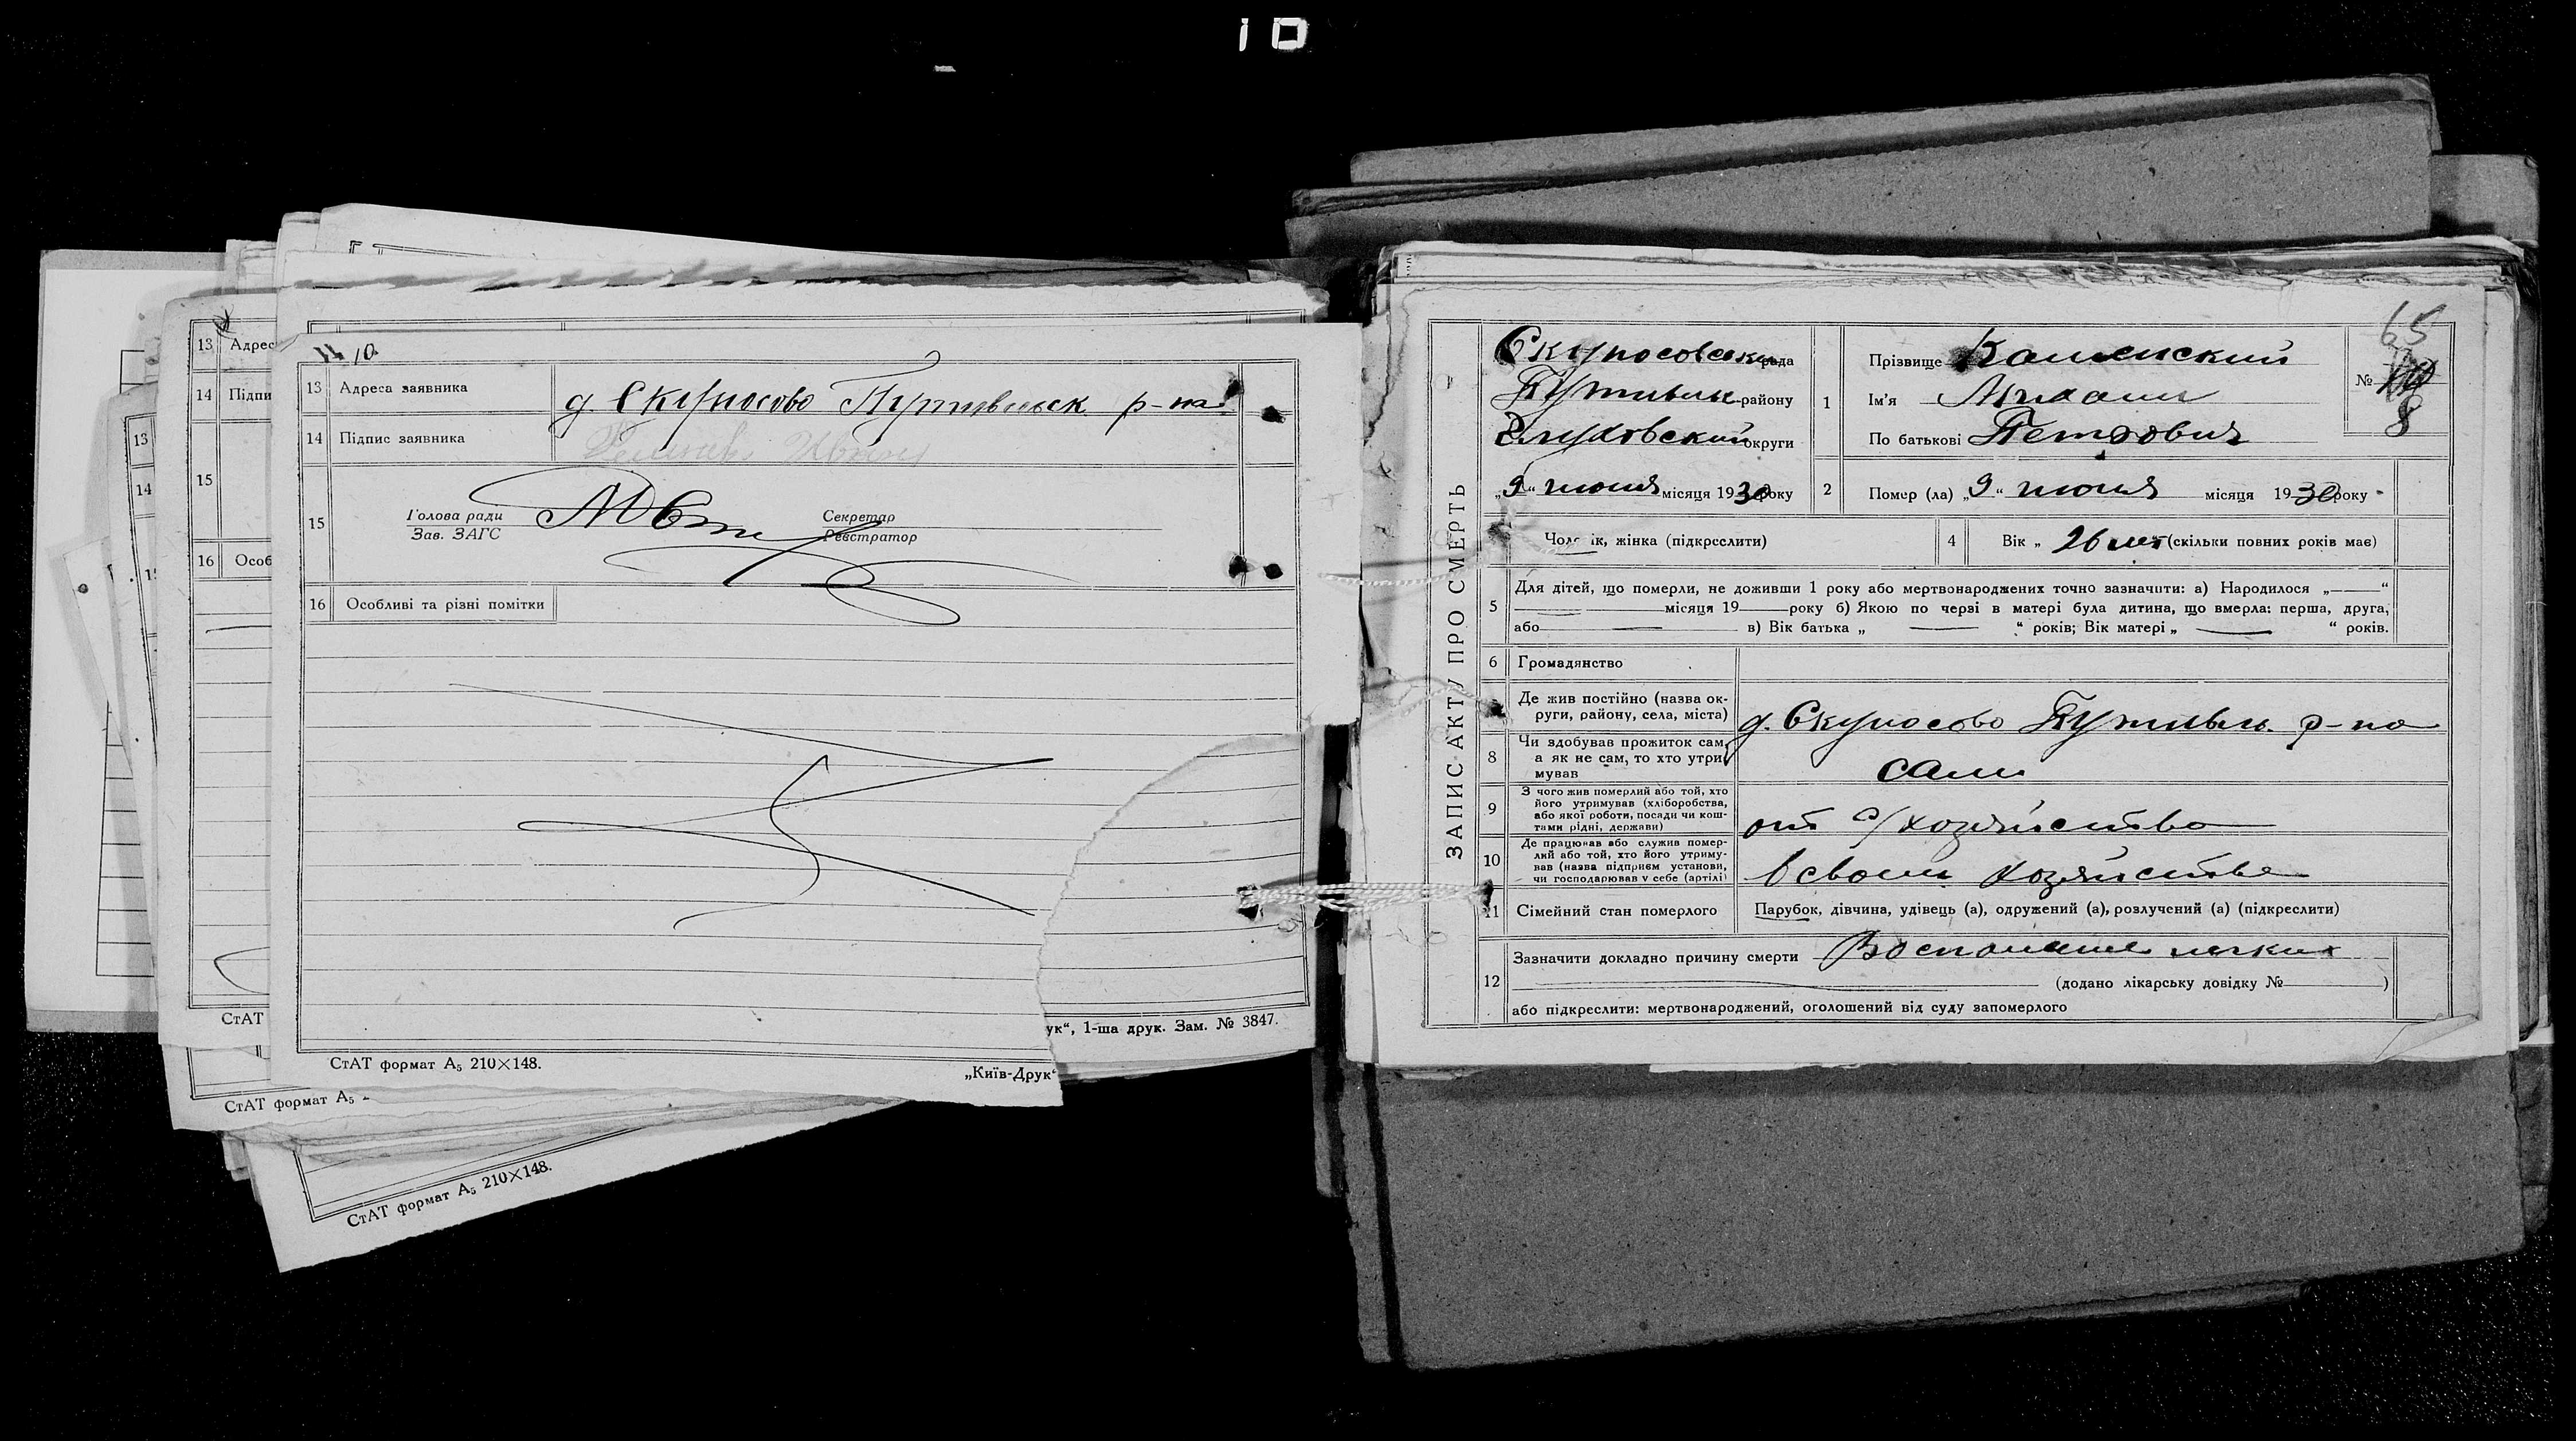 10
13 Адрес
14 Підпи
15
16 Особ
СтАТ
СтАТ формат А₅
СтАТ формат А₅ 210×148.
13
14
10.
13 Адреса заявника д. Скуносово Путивльск р-на
14 Підпис заявника
15 Голова ради
Зав. ЗАГС
Секретар
Реєстратор
16 Особливі та різні помітки
СтАТ формат А₅ 210×148.
„Київ-Друк“
ук“, 1-ша друк. Зам. № 3847.
ЗАПИС АКТУ ПРО СМЕРТЬ
65
Скуносовська рада
Путивльск району
Глуховский округи
„9“ июня місяця 1930 року
1 Прізвище Каменский
Ім'я Михаил
По батькові Петрович
№ 8
2 Помер (ла) „9“ июня місяця 1930 року
Чоловік, жінка (підкреслити)
4 Вік „ 26 лет (скільки повних років має)
5 Для дітей, що померли, не доживши 1 року або мертвонароджених точно зазначити: а) Народилося „—“
— місяця 19— року б) Якою по черзі в матері була дитина, що вмерла: перша, друга,
або — в) Вік батька „ — “ років; Вік матері „ — “ років.
6 Громадянство
Де жив постійно (назва ок-
руги, району, села, міста) д. Скуносово Путивль. р-на
8 Чи здобував прожиток сам,
а як не сам, то хто утри-
мував
сам
9 З чого жив померлий або той, хто
його утримував (хліборобства,
або якої роботи, посади чи кош-
тами рідні, держави)
от с/хозяйства
10 Де працював або служив помер-
лий або той, хто його утриму-
вав (назва підприєм установи,
чи господарював у себе (артілі)
в своем хозяйстве
11 Сімейний стан померлого Парубок, дівчина, удівець (а), одружений (а), розлучений (а) (підкреслити)
12 Зазначити докладно причину смерти Воспаление легких
(додано лікарську довідку № — )
або підкреслити: мертвонароджений, оголошений від суду запомерлого